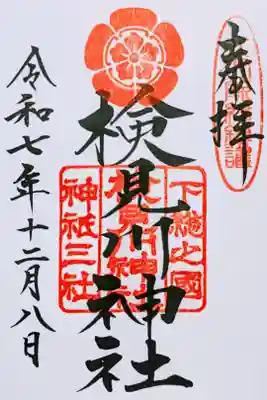 奉拝
検見川神社
下総之國
検見川神社
神祇三社
令和七年十二月八日